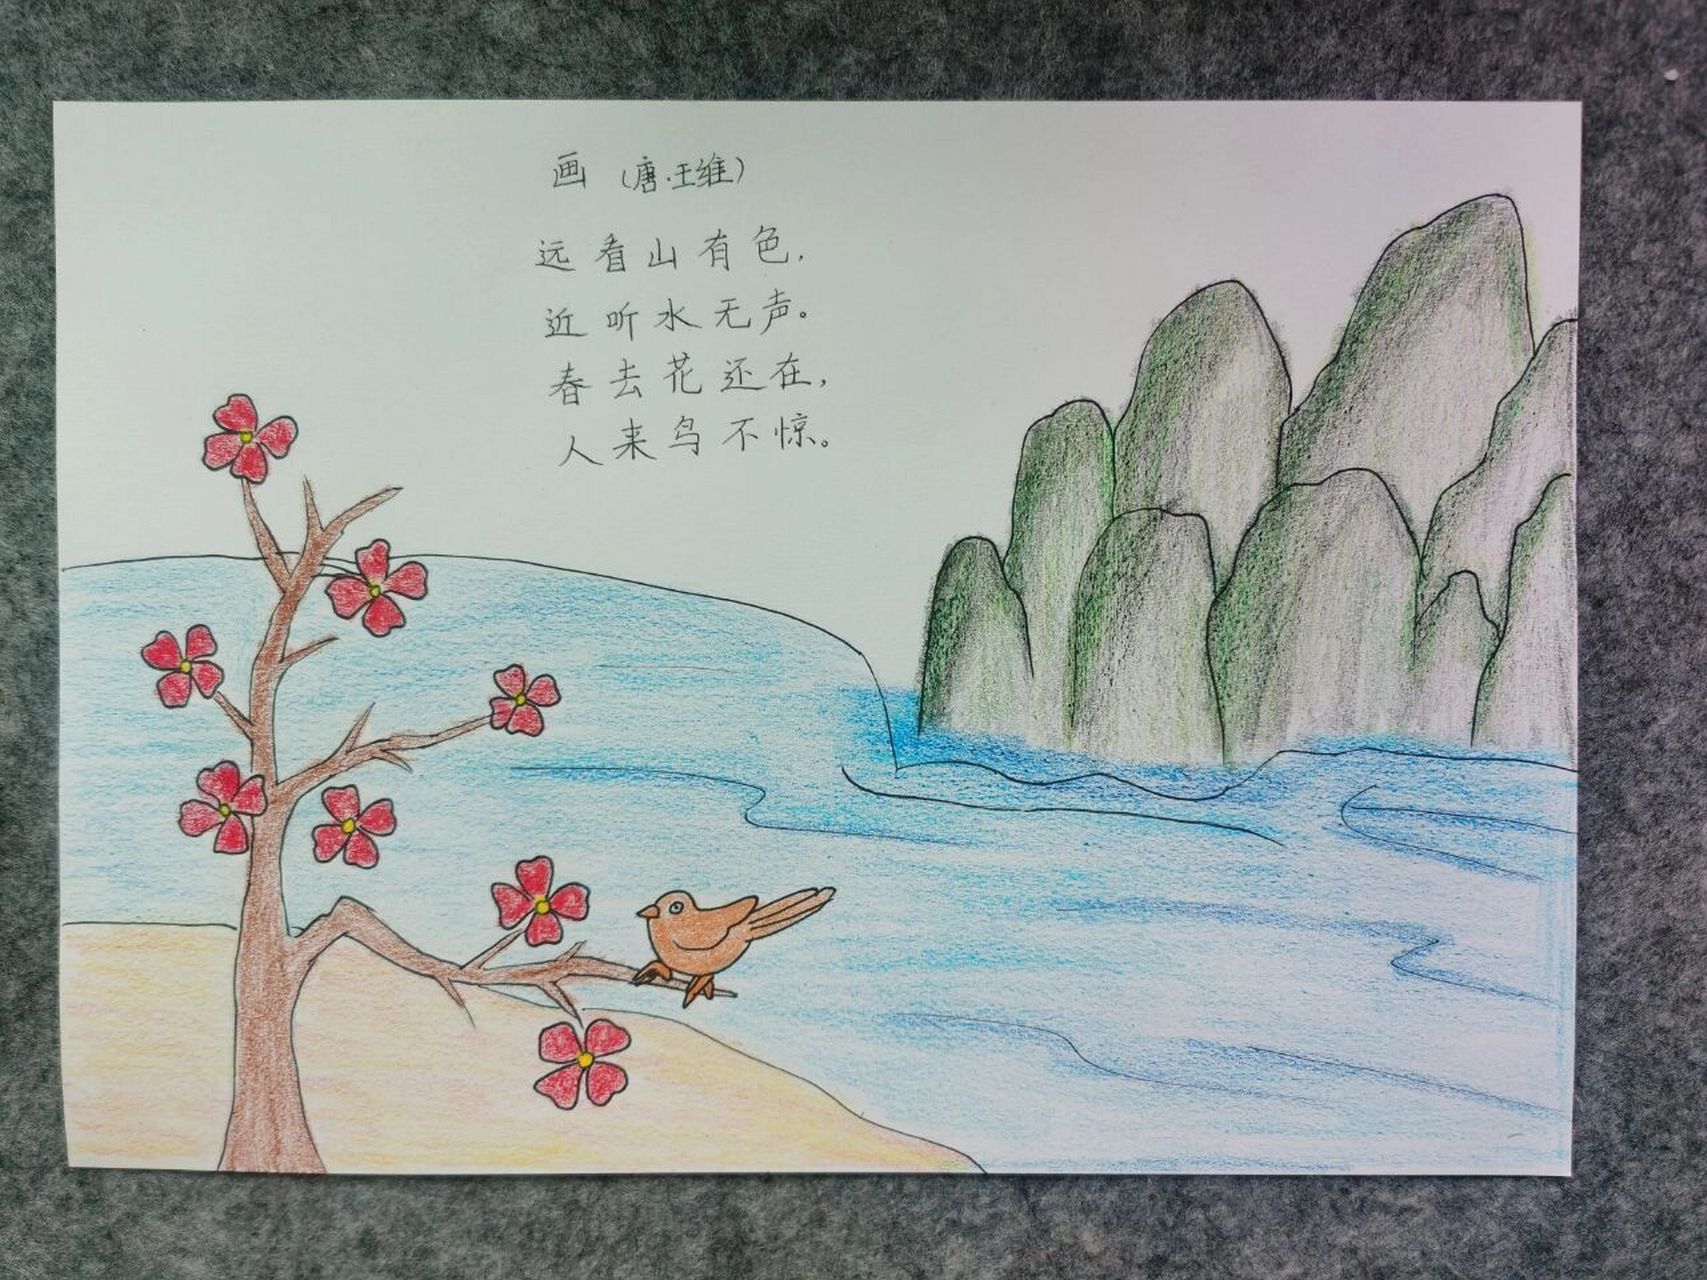 画 （唐·王维）
远看山有色，
近听水无声。
春去花还在，
人来鸟不惊。